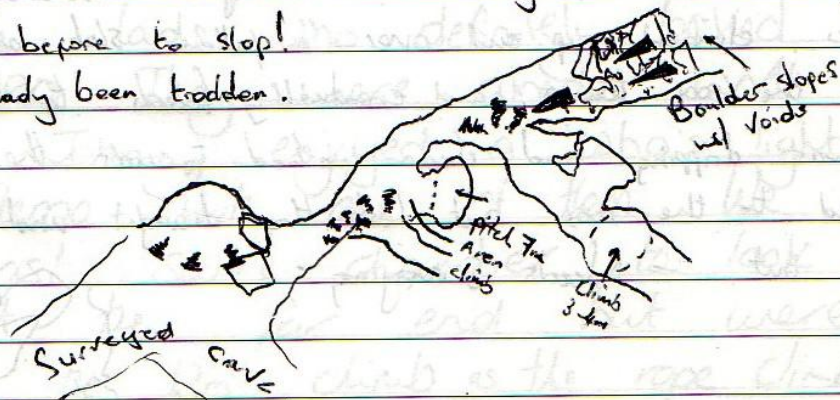 before to stop!
ady been trodden.
Boulder slopes
w/ voids
Pitch 7m
Aven
climb
Climb
3-4m
Surveyed cave